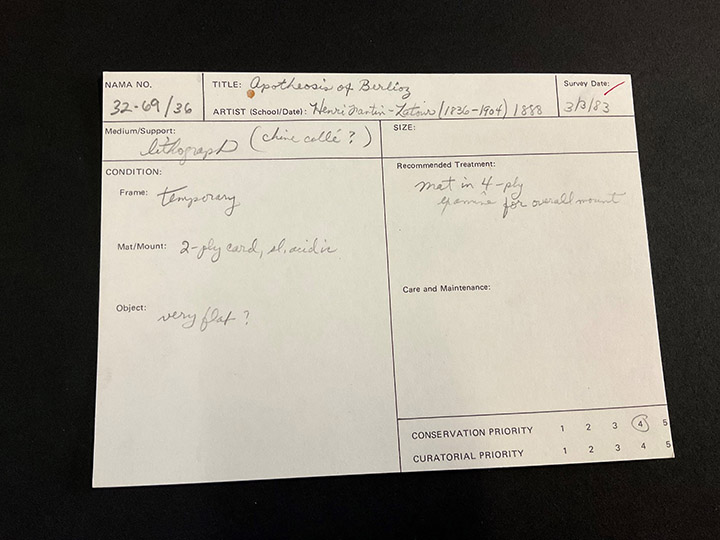 NAMA NO.
32-69/36
TITLE: Apotheosis of Berlioz
ARTIST (School/Date): Henri Fantin-Latour (1836-1904) 1888
Survey Date:
3/3/83
Medium/Support:
lithograph (chine collé?)
SIZE:
CONDITION:
Frame: temporary
Mat/Mount: 2-ply card, sl. acidic
Object: very flat?
Recommended Treatment:
mat in 4-ply
examine for overall mount
Care and Maintenance:
CONSERVATION PRIORITY 1 2 3 4 5
CURATORIAL PRIORITY 1 2 3 4 5